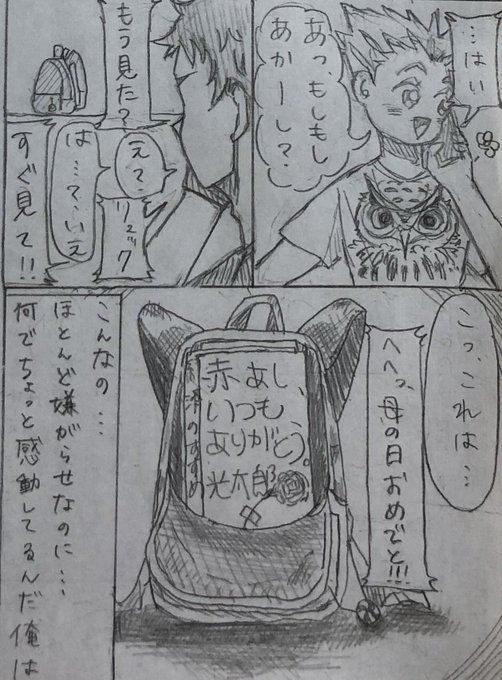 …はい
あっ、もしもし
あかーし?
もう見た?
え?
リュック
は…?いえ
すぐ見て!!
こっ、これは…
へへっ、母の日おめでと!!!
赤あし、
いつも
ありがとう。
光太郎
のすすめ
こんなの…
ほとんど嫌がらせなのに…
何でちょっと感動してるんだ俺は